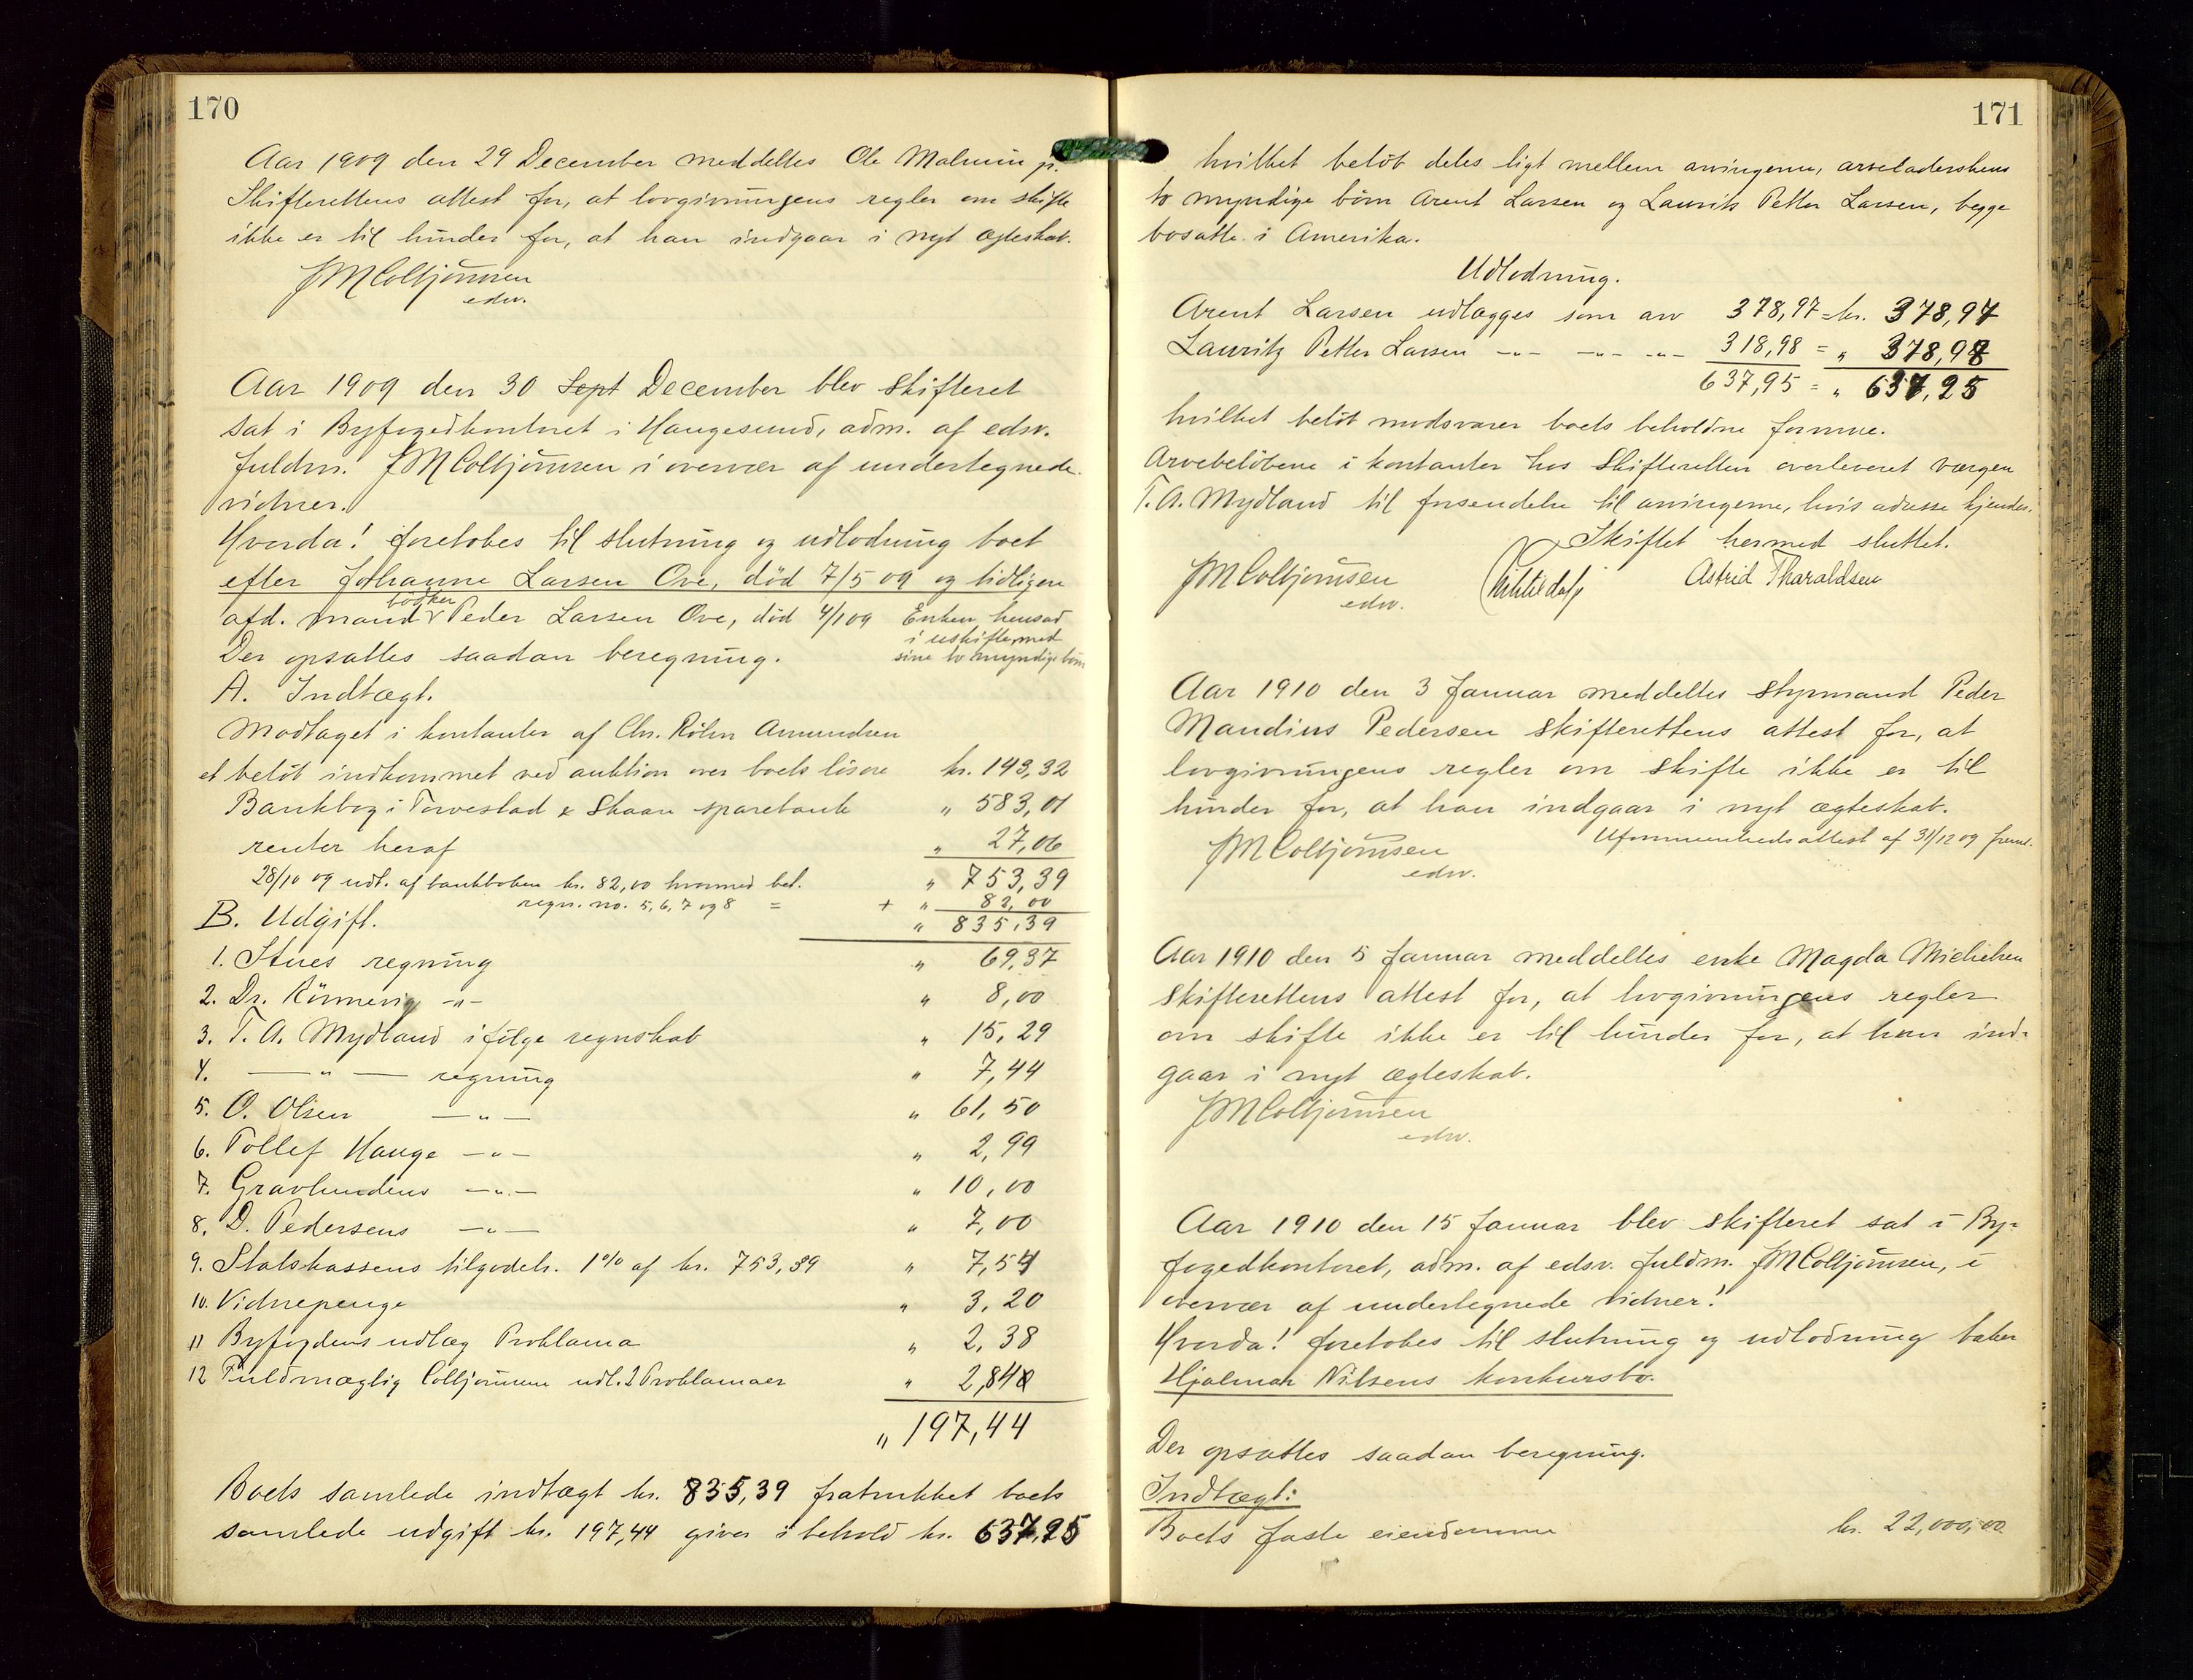 170
Aar 1909 den 29 December meddeltes Ole Malmin jr.
Skifterettens attest for, at lovgivningens regler om skifte
ikke er til hinder for, at han indgaar i nyt ægteskab.
JMColbjørnsen
edsv.
Aar 1909 den 30 Sept December blev skifteret
sat i Byfogedkontoret i Haugesund, adm. af edsv.
fuldm. JMColbjørnsen i overvær af undertegnede
vidner.
Hvorda! foretoges til slutning og udlodning boet
efter Johanne Larsen Ove, død 7/5 09 og tidligere
afd. mand bødker Peder Larsen Ove, død 4/1 09 Enken hensad
i uskifte med
sine to myndige børn
Der opsattes saadan beregning.
A. Indtægt.
Modtaget i kontanter af Chr. Røhn Amundsen
et beløb indkommet ved auktion over boets løsøre kr. 143,32
Bankbog i Torvestad & Skaare sparebank " 583,01
renter heraf " 27,06
" 753,39
28/10 09 udt. af bankboken kr. 82,00 hvormed bet.
regn. no. 5, 6, 7 og 8 = + " 82,00
" 835,39
B. Udgift.
1. Stues regning " 69,37
2. Dr. Rønnevig -"- " 8,00
3. T. A. Mydland ifølge regnskab " 15,29
4. — " — regning " 7,44
5. O. Olsen — " — " 61,50
6. Tollef Hauge — " — " 2,99
7. Gravlundens — " — " 10,00
8. D. Pedersens — " — " 7,00
9. Statskassens tilgodeh. 1% af kr. 753,39 " 7,54
10. Vidnepenge " 3,20
11 Byfogdens udlæg Proklama " 2,38
12 Fuldmægtig Colbjørnsen udl. 2 Proklamaer " 2,84
" 197,44
Boets samlede indtægt kr. 835,39 fratrukket boets
samlede udgift kr. 197,44 giver i behold kr. 637,95
171
hvilket beløb deles ligt mellem arvingerne, arveladerskens
to myndige børn Arent Larsen og Laurits Petter Larsen, begge
bosatte i Amerika.
Udlodning.
Arent Larsen udlægges som arv 318,97 = kr. 318,97
Lauritz Petter Larsen -"- -"- -"- 318,98 = " 318,98
637,95 = " 637,95
hvilket beløb modsvarer boets beholdne formue.
Arvebeløbene i kontanter hos Skifteretten overleveret værgen
T. A. Mydland til forsendelse til arvingerne, hvis adresse kjendes.
Skiftet hermed sluttet.
JMColbjørnsen
edsv.
Astrid Tharaldsen
Aar 1910 den 3 Januar meddeltes styrmand Peder
Mandius Pedersen skifterettens attest for, at
lovgivningens regler om skifte ikke er til
hinder for, at han indgaar i nyt ægteskab.
Uformuenhedsattest af 31/12 09 freml.
JMColbjørnsen
edsv.
Aar 1910 den 5 Januar meddeltes enke Magda Michelsen
skifterettens attest for, at lovgivningens regler
om skifte ikke er til hinder for, at han ind-
gaar i nyt ægteskab.
JMColbjørnsen
edsv.
Aar 1910 den 15 Januar blev skifteret sat i By-
fogedkontoret, adm. af edsv. fuldm. JMColbjørnsen, i
overvær af undertegnede vidner!
Hvorda! foretoges til slutning og udlodning baker
Hjalmar Nilsens konkursbo.
Der opsattes saadan beregning.
Indtægt:
Boets faste eiendomme kr. 22,000,00